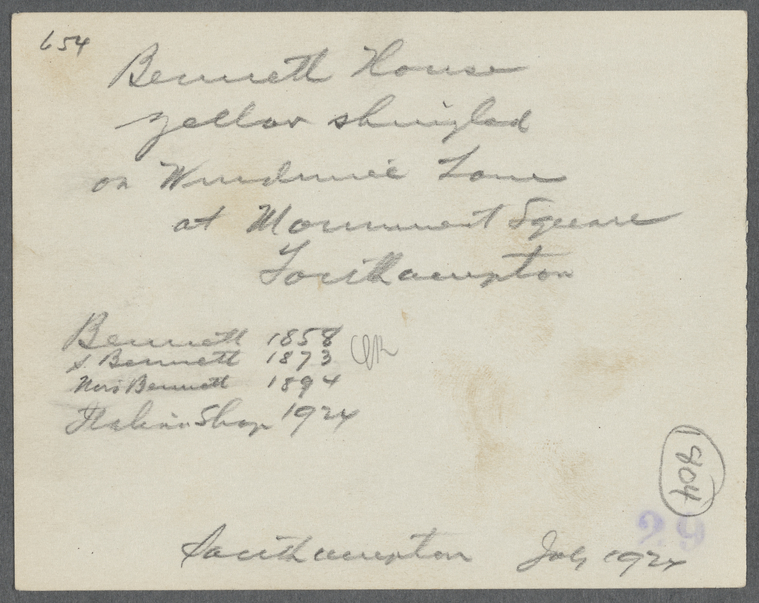 654
Bennett House
yellow shingled
on Windmill Lane
at Monument Square
Southampton
Bennett 1858
S. Bennett 1873 OR
Mrs Bennett 1894
Italian Shop 1924
1804
29
Southampton July 1924